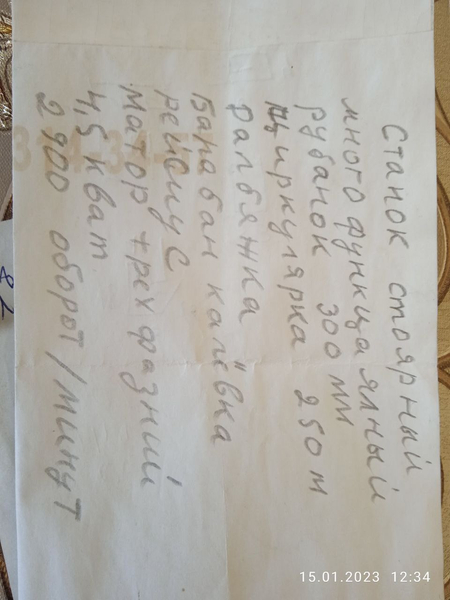 Станок стоярный
многофункцаялный
рубанок 300 мм
циркулярка 250 м
фалбяжка
Барабан калёвка
рейсмус
Матор трехфазний
4,5 кват
2900 оборот/минут
15.01.2023 12:34